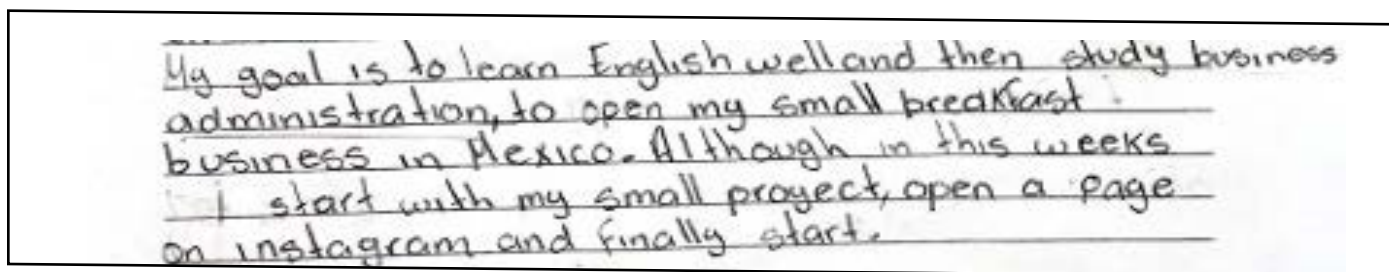 My goal is to learn English well and then study business
administration, to open my small breakfast
business in Mexico. Although in this weeks
I start with my small proyect, open a page
on instagram and finally start.